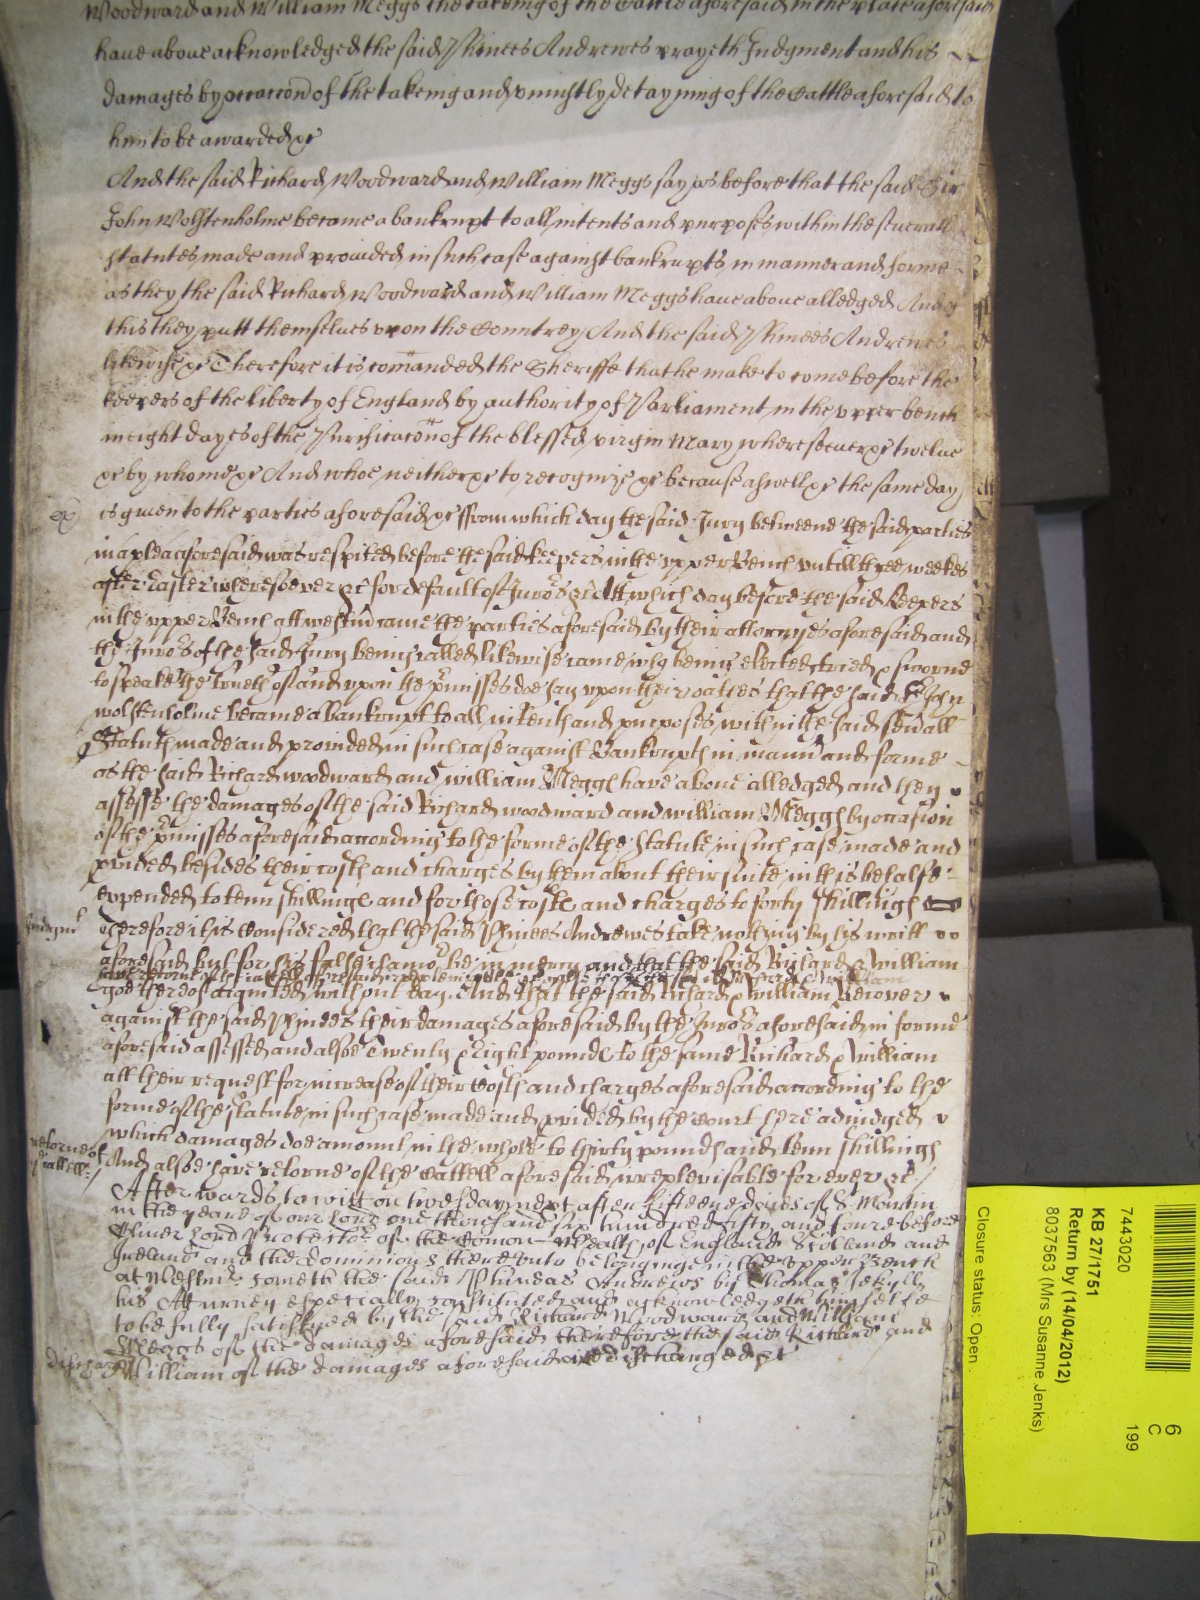 Woodward and William Meggs the takeing of the Cattle aforesaid in the place aforesaid
have above acknowledged the said Phinees Andrewes prayeth Judgment and his
damages by occacon of the takeing and uniustly detayning of the Cattle aforesaid to
him to be awarded &c
And the said Richard Woodward and William Meggs say as before that the said Sir
John Wolstenholme became a bankrupt to all intents and purposes within the severall
statutes made and provided in such case against bankrupts in manner and forme
as they the said Richard Woodward and William Meggs have above alledged And of
this they putt themselves upon the Countrey And the said Phinees Andrewes
likewise &c Therefore it is comanded the Sheriffe that he make to come before the
keepers of the liberty of England by authority of Parliament in the upper bench
in eight dayes of the Purificacon of the blessed virgin Mary wheresoever &c twelve
&c by whome &c And whoe neither &c to recognize &c because aswell &c the same day
is given to the parties aforesaid &c ffrom which day the said Jury betweene the said parties
in a plea aforesaid was respited before the said keepers in the upper Bench untill three weekes
after Easter wheresoever &c for default of Juros &c Att which day before the said Keepers
in the upper Bench att westm came the parties aforesaid by their attornyes aforesaid and
the Juros of the said Jury being called likewise came who being elected tried & sworne
to speake the trueth of and upon the pmisses doe say upon their oathes that the said Sr John
wolstenholme became a bankrupt to all intents and purposes within the said sevall
Statuts made and provided in such case against Bankrupts in mann and forme
as the said Richard woodward and william Meggs have above alledged and they
assesse the damages of the said Richard woodward and william Meggs by occasion
of the pmisses aforesaid according to the forme of the Statute in such case made and
pvided besides their costs and charges by them about their suite in this behalfe
expended to tenn shillings and for those costs and charges to forty shillings
Judgmt
Therefore it is Considered that the said Phinees Andrewes take nothing by his writt
aforesaid but for his false clamor be in mercy and that the said Richard & William
goe thereof acquitted without day And that the said Richard & william Recover
against the said Phinees their damages aforesaid by the Juros aforesaid in forme
aforesaid assessed and alsoe Twenty & Eight pounds to the same Richard & William
att their request for increase of their Costs and charges aforesaid according to the
forme of the statute in such case made and pvided by the Court here adiudged
which damages doe amount in the whole to thirty pounds and tenn shillings
retorne of
cattell
And alsoe have retorne of the Cattell aforesaid irreplevisable for ever &c
Afterwards to witt on tuesday next after fifteene daies of S Martin
in the yeare of our Lord one thousand six hundred fifty and foure before
Oliver Lord Protector of the Comon Wealth of England Scotland and
Ireland and the dominions thereunto belonginge in the upper Bench
at Westmr cometh the said Phineas Andrews by Thomas Jekyll
his Atturney especially constituted and acknowledgeth himselfe
to be fully satisfyed by the said Richard Woodward and William
Meggs of the damages aforesaid therefore the said Richard and
William of the damages aforesaid are dischanged &c
7443020
KB 27/1751
Return by (14/04/2012)
8037563 (Mrs Susanne Jenks)
Closure status: Open
6
C
199